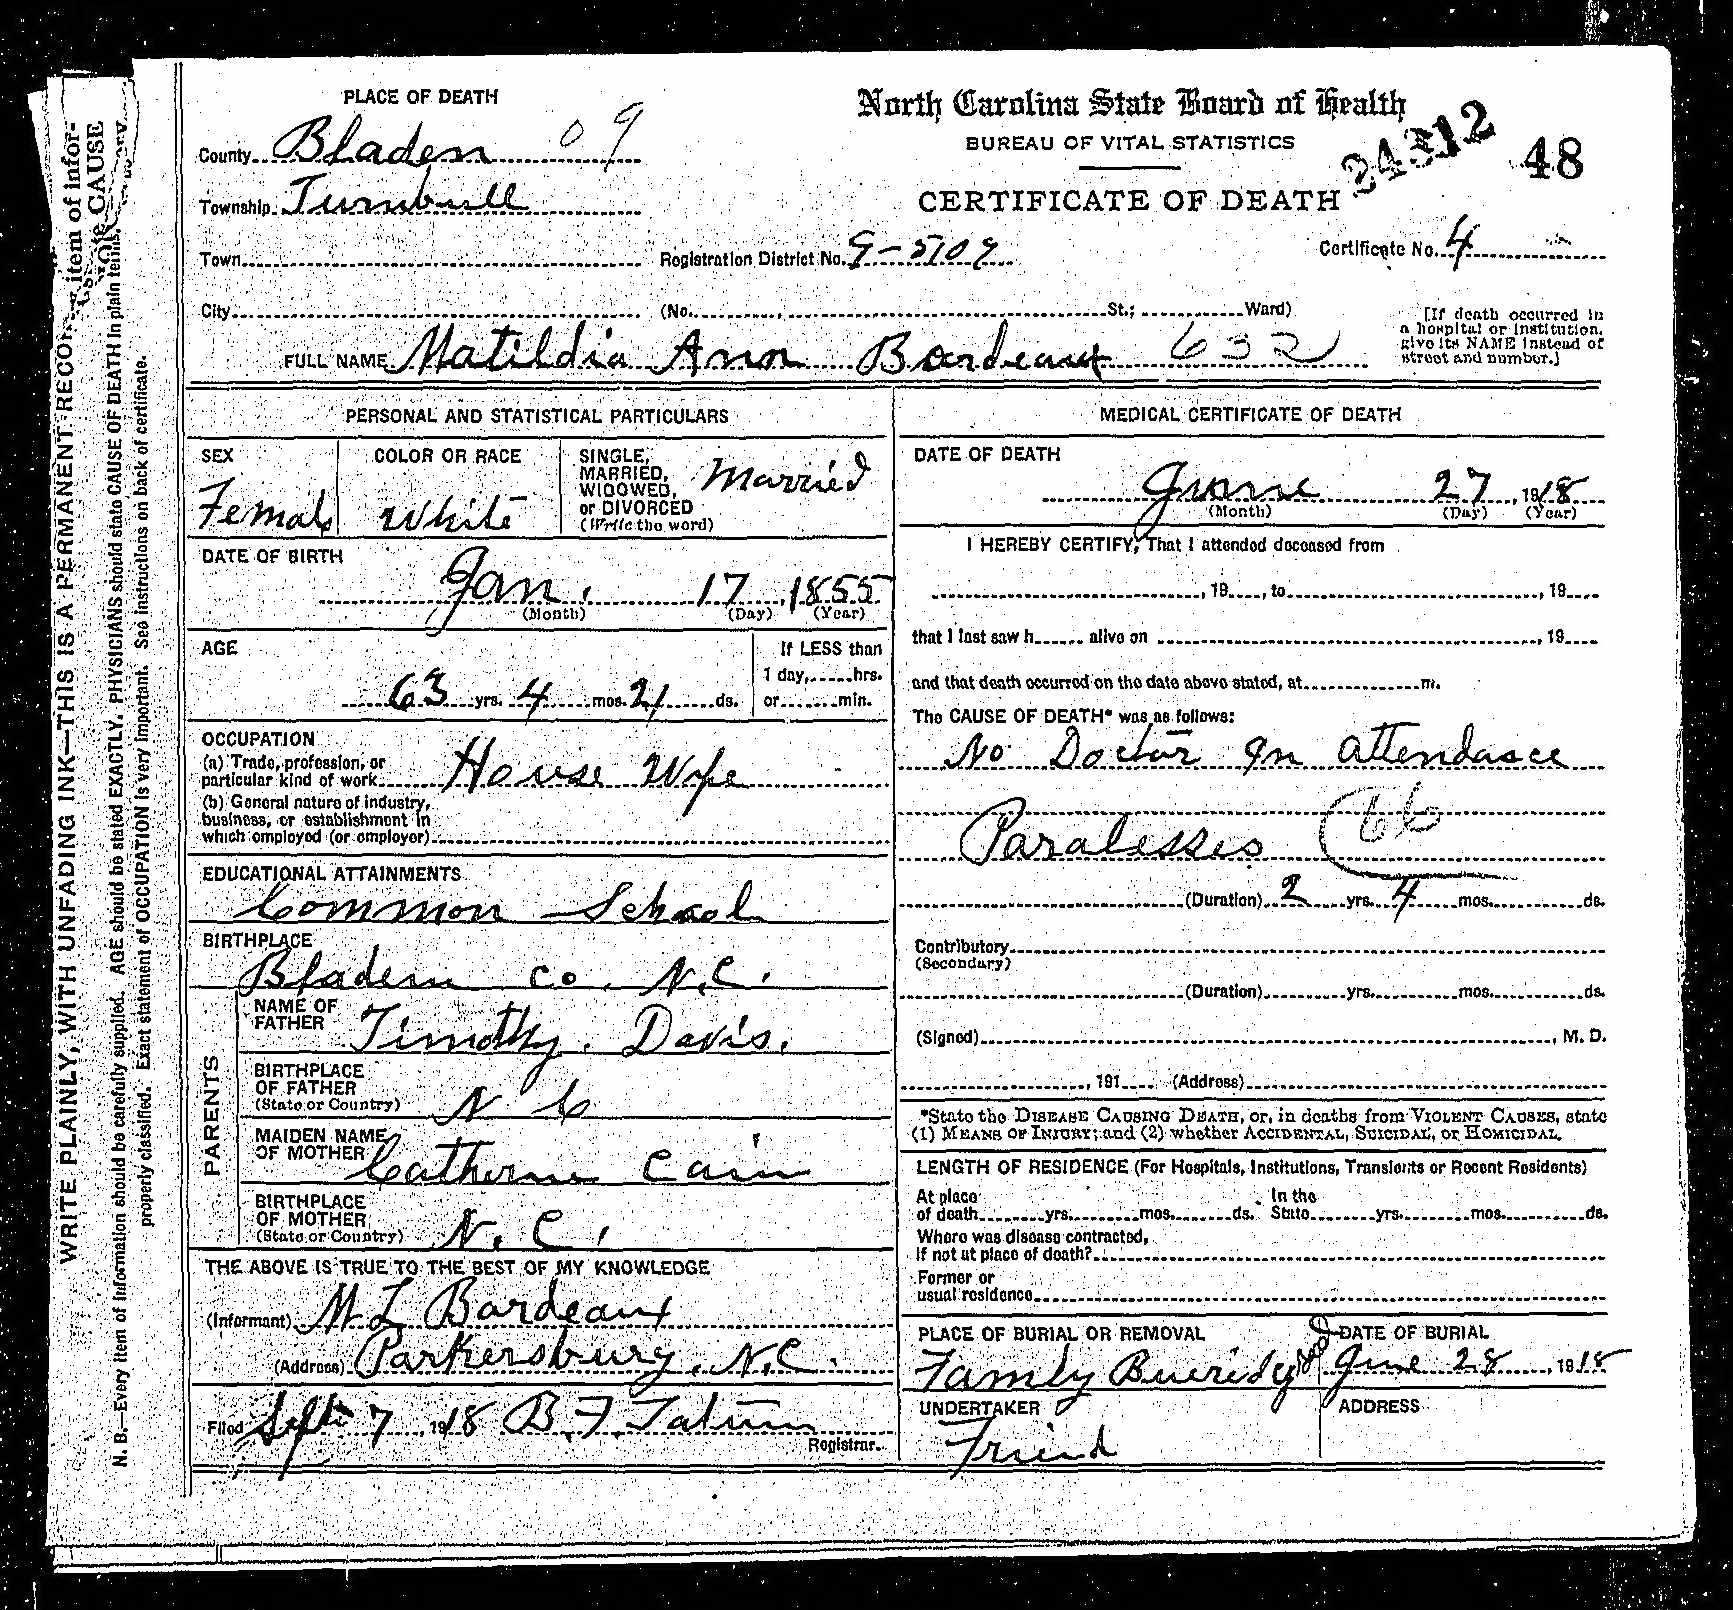 PLACE OF DEATH
County Bladen 09
Township Turnbull
Town
City
North Carolina State Board of Health
BUREAU OF VITAL STATISTICS
24312
48
CERTIFICATE OF DEATH
Registration District No. 9-5109
Certificate No. 4
(No. , St.; Ward)
[If death occurred in
a hospital or institution,
give its NAME instead of
street and number.]
FULL NAME Matildia Ann Bordeaux 632
PERSONAL AND STATISTICAL PARTICULARS
SEX
Female
COLOR OR RACE
White
SINGLE,
MARRIED,
WIDOWED,
or DIVORCED
(Write the word)
Married
DATE OF BIRTH
Jan. 17, 1855
(Month) (Day) (Year)
AGE
63 yrs. 4 mos. 21 ds.
If LESS than
1 day, hrs.
or min.
OCCUPATION
(a) Trade, profession, or
particular kind of work House Wife
(b) General nature of industry,
business, or establishment in
which employed (or employer)
EDUCATIONAL ATTAINMENTS
Common School
BIRTHPLACE
Bladen Co. N.C.
PARENTS
NAME OF
FATHER Timothy. Davis.
BIRTHPLACE
OF FATHER
(State or Country) N C
MAIDEN NAME
OF MOTHER Catherine Cain
BIRTHPLACE
OF MOTHER
(State or Country) N.C.
THE ABOVE IS TRUE TO THE BEST OF MY KNOWLEDGE
(Informant) M L Bordeaux
(Address) Parkersburg, N.C.
Filed Sept 7, 1918 B.F. Tatum
Registrar.
MEDICAL CERTIFICATE OF DEATH
DATE OF DEATH
June 27, 1918
(Month) (Day) (Year)
I HEREBY CERTIFY, That I attended deceased from
, 19 , to , 19
that I last saw h alive on , 19
and that death occurred on the date above stated, at m.
The CAUSE OF DEATH* was as follows:
No Doctor In attendasce
Paralesses 66
(Duration) 2 yrs. 4 mos. ds.
Contributory
(Secondary)
(Duration) yrs. mos. ds.
(Signed) , M. D.
, 191 (Address)
*State the DISEASE CAUSING DEATH, or, in deaths from VIOLENT CAUSES, state
(1) MEANS OF INJURY; and (2) whether ACCIDENTAL, SUICIDAL, or HOMICIDAL.
LENGTH OF RESIDENCE (For Hospitals, Institutions, Transients or Recent Residents)
At place
of death yrs. mos. ds.
In the
State yrs. mos. ds.
Where was disease contracted,
If not at place of death?
Former or
usual residence
PLACE OF BURIAL OR REMOVAL
Family
DATE OF BURIAL
June 28, 1918
UNDERTAKER
Friend
ADDRESS
WRITE PLAINLY, WITH UNFADING INK—THIS IS A PERMANENT RECORD
N. B.—Every item of information should be carefully supplied. AGE should be stated EXACTLY. PHYSICIANS should state CAUSE OF DEATH in plain terms,
properly classified. Exact statement of OCCUPATION is very important. See instructions on back of certificate.
item of infor-
state CAUSE